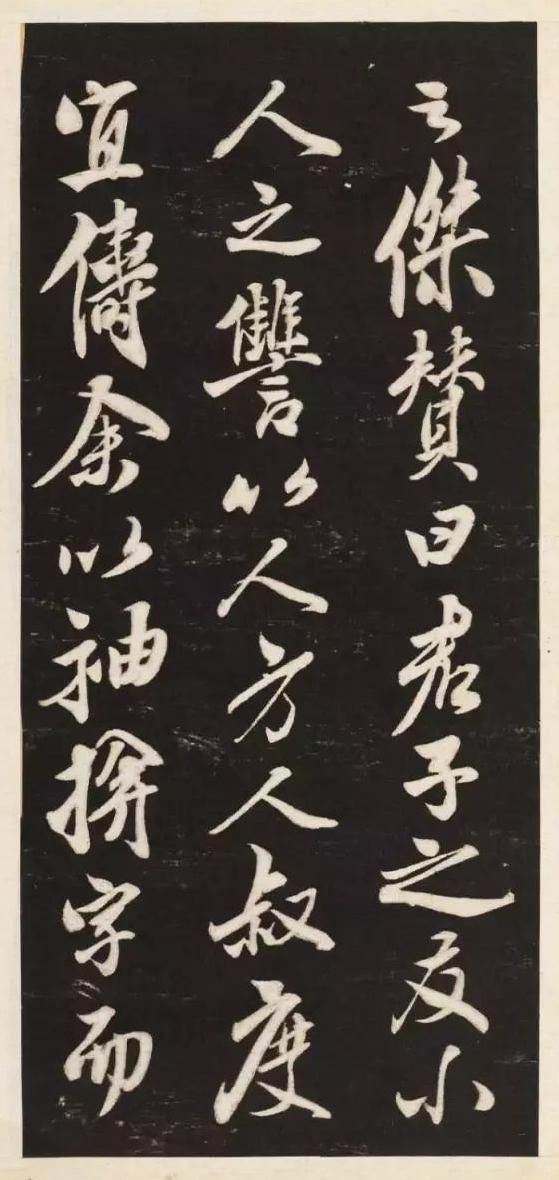 云傑贊曰君子之友小
人之讐以人方人叔度
宜儔余以袖揜字而